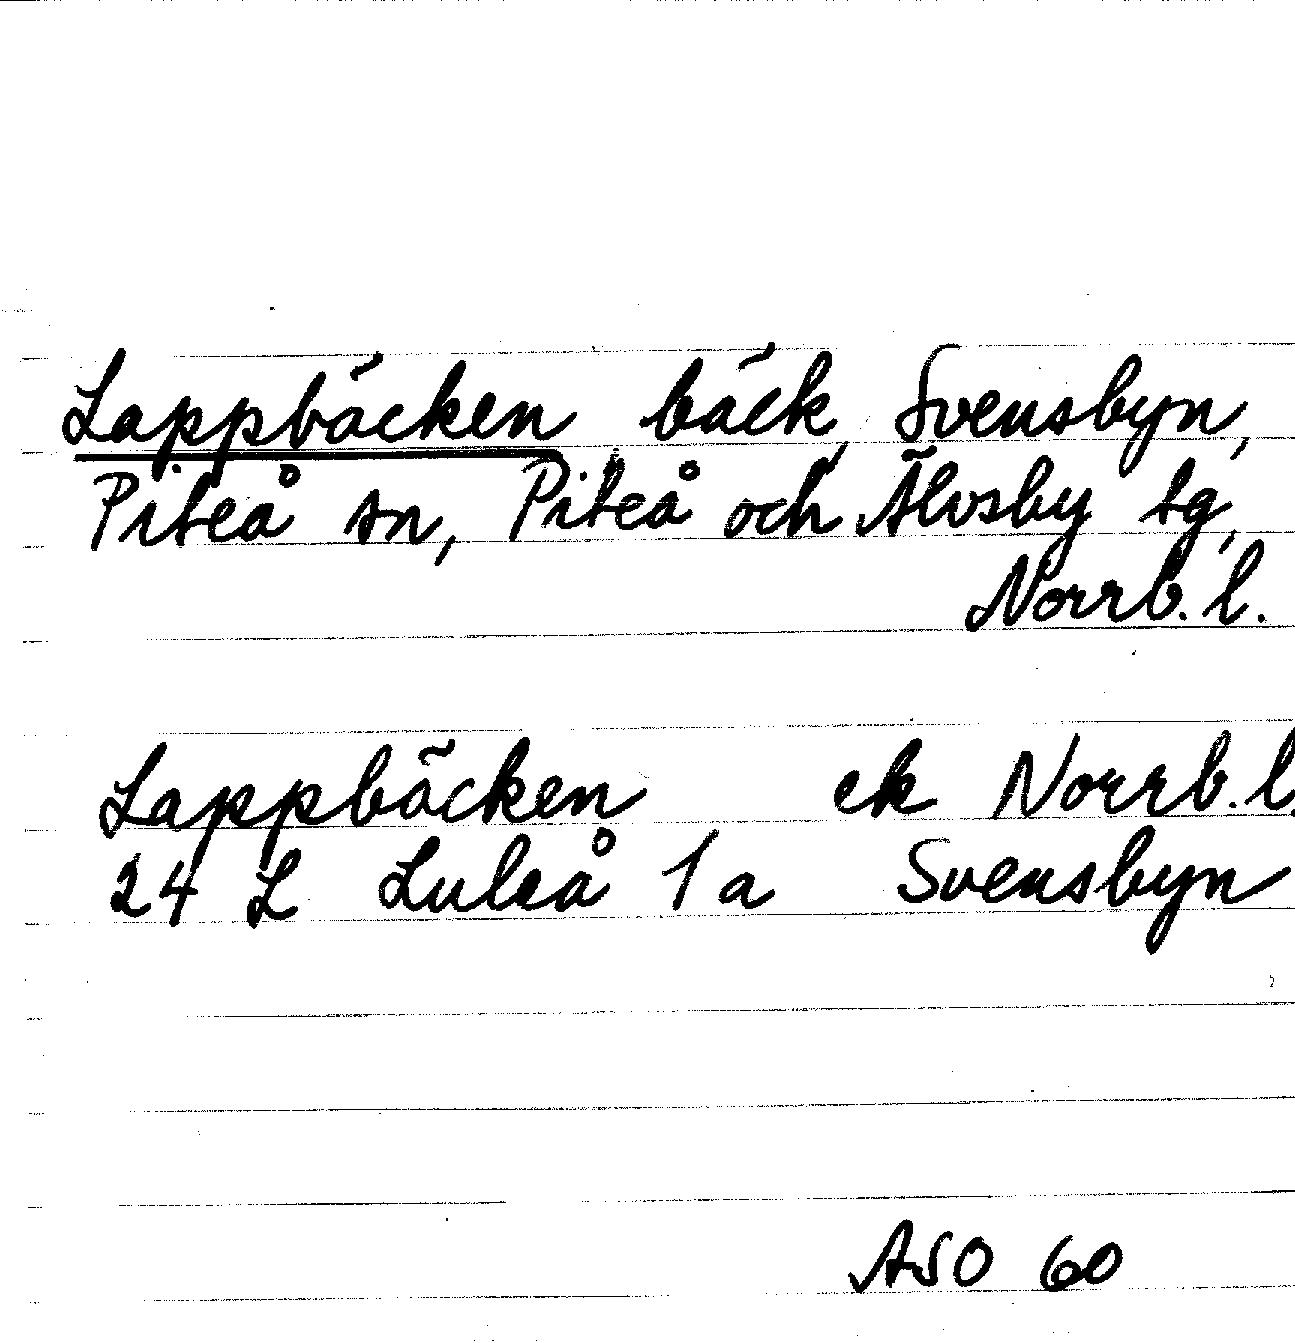 Lappbäcken bäck, Svensbyn,
Piteå sn, Piteå och Älvsby tg,
Norrb. l.
Lappbäcken ek Norrb. l.
24 L Luleå 1 a Svensbyn
ASO 60